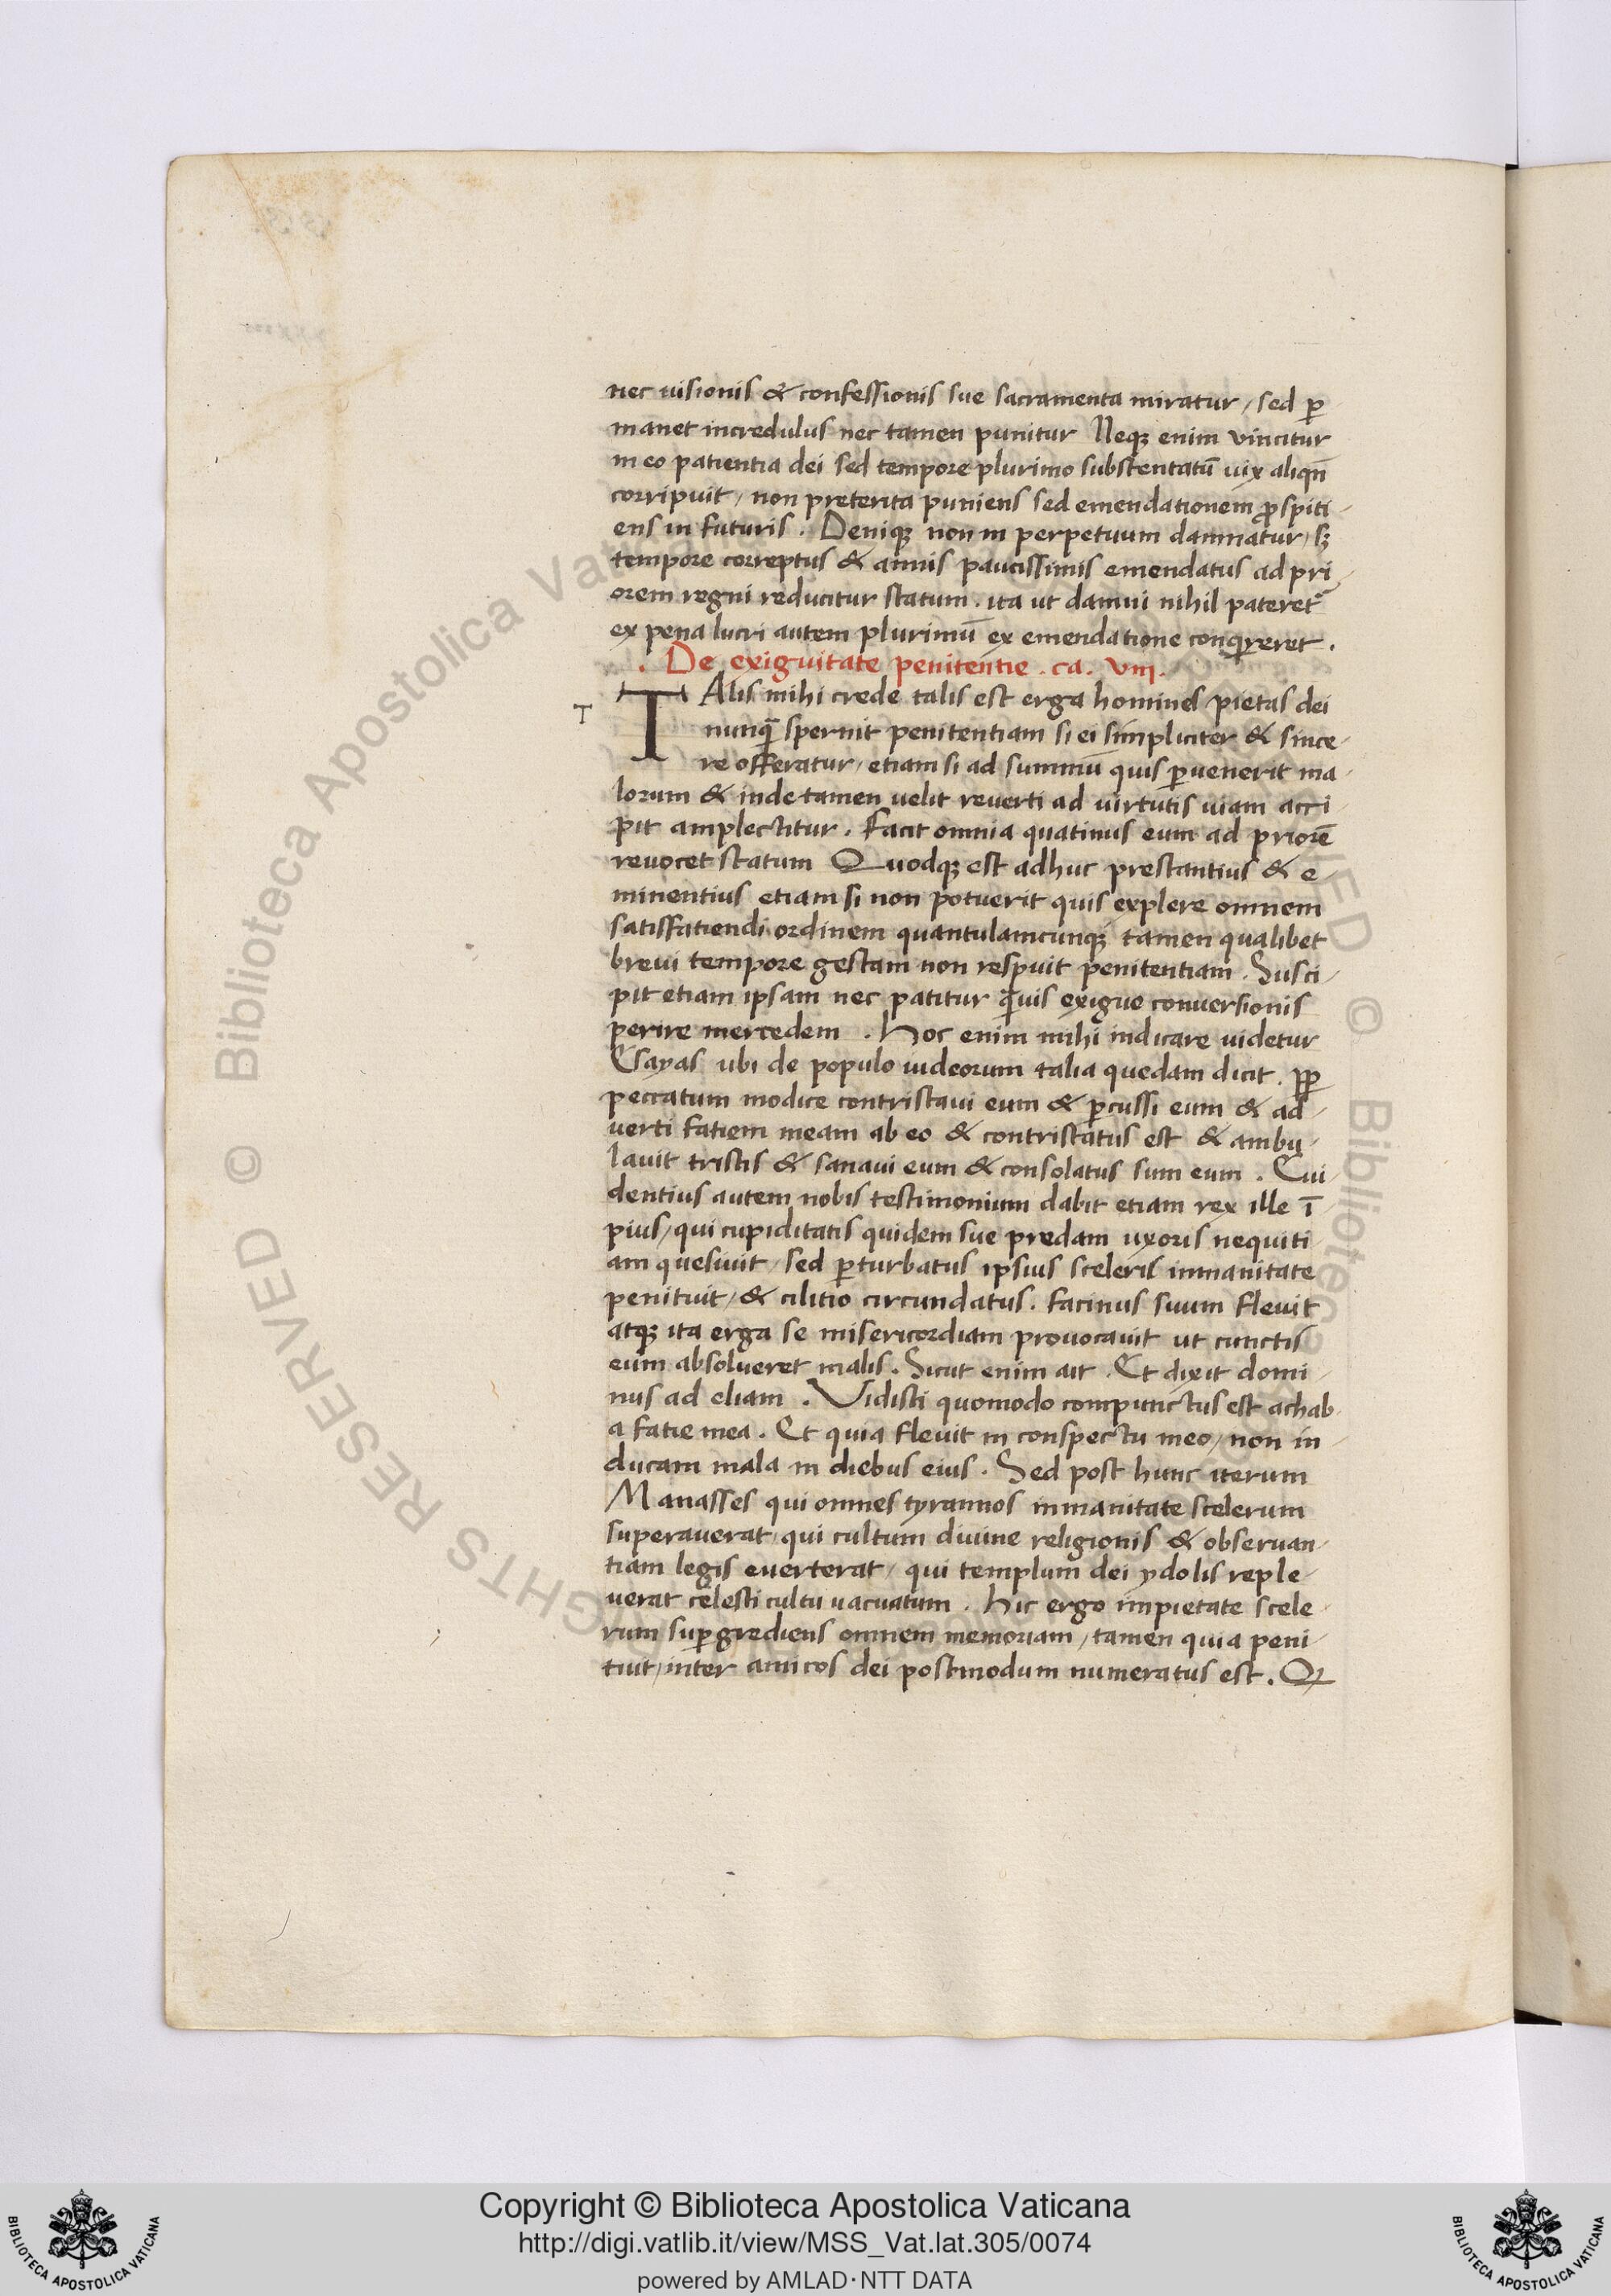 nec uisionis & confessionis sue sacramenta miratur / sed ꝑ
manet incredulus nec tamen punitur Neqꝫ enim vincitur
in eo patientia dei sed tempore plurimo substentatū uix aliqn̄
corripuit / non preterita puniens sed emendationem ꝓspiti-
ens in futuris . Deniqꝫ non in perpetuum damnatur / sꝫ
tempore correptus & annis paucissimis emendatus ad pri-
orem regni reducitur statum . ita ut damni nihil pateret᷑
ex pena lucri autem plurimū ex emendatione conqͥreret .
. De exiguitate penitentie . ca . viij .
T
TAlis mihi crede talis est erga homines pietas dei
nunqͣ̄ spernit penitentiam si ei simpliciter & since-
re offeratur / etiam si ad summū quis ꝑuenerit ma-
lorum & inde tamen uelit reuerti ad uirtutis uiam acci-
pit amplectitur . Facit omnia quatinus eum ad priorē
reuocet statum Quodqꝫ est adhuc prestantius & e-
minentius etiam si non potuerit quis explere omnem
satisfatiendi ordinem quantulamcunqꝫ tamen qualibet
breui tempore gestam non respuit penitentiam . Susci-
pit etiam ipsam nec patitur qͣuis exigue conuersionis
perire mercedem . Hoc enim mihi indicare uidetur
Esayas ubi de populo iudeorum talia quedam dicit . ꝓꝑ
peccatum modice contristaui eum & ꝑcussi eum & ad-
uerti fatiem meam ab eo & contristatus est & ambu-
lauit tristis & sanaui eum & consolatus sum eum . Eui-
dentius autem nobis testimonium dabit etiam rex ille ī-
pius / qui cupiditatis quidem sue predam uxoris nequiti-
am quesiuit / sed ꝑturbatus ipsius sceleris inmanitate
penituit / & cilitio circundatus . facinus suum fleuit
atqꝫ ita erga se misericordiam prouocauit ut cunctis
eum absolueret malis . Sicut enim ait . Et dixit domi-
nus ad eliam . Vidisti quomodo compunctus est achab
a fatie mea . Et quia fleuit in conspectu meo / non in-
ducam mala in diebus eius . Sed post hunc iterum
Manasses qui omnes tyrannos inmanitate scelerum
superauerat / qui cultum diuine religionis & obseruan-
tiam legis euerterat / qui templum dei ydolis reple-
uerat celesti cultu uacuatum . Hic ergo impietate scele-
rum suꝑgrediens omnem memoriam / tamen quia peni-
tuit / inter amicos dei postmodum numeratus est . Q
© Biblioteca Apostolica Vaticana
RIGHTS RESERVED
Copyright © Biblioteca Apostolica Vaticana
http://digi.vatlib.it/view/MSS_Vat.lat.305/0074
powered by AMLAD·NTT DATA
BIBLIOTECA APOSTOLICA VATICANA
BIBLIOTECA APOSTOLICA VATICANA